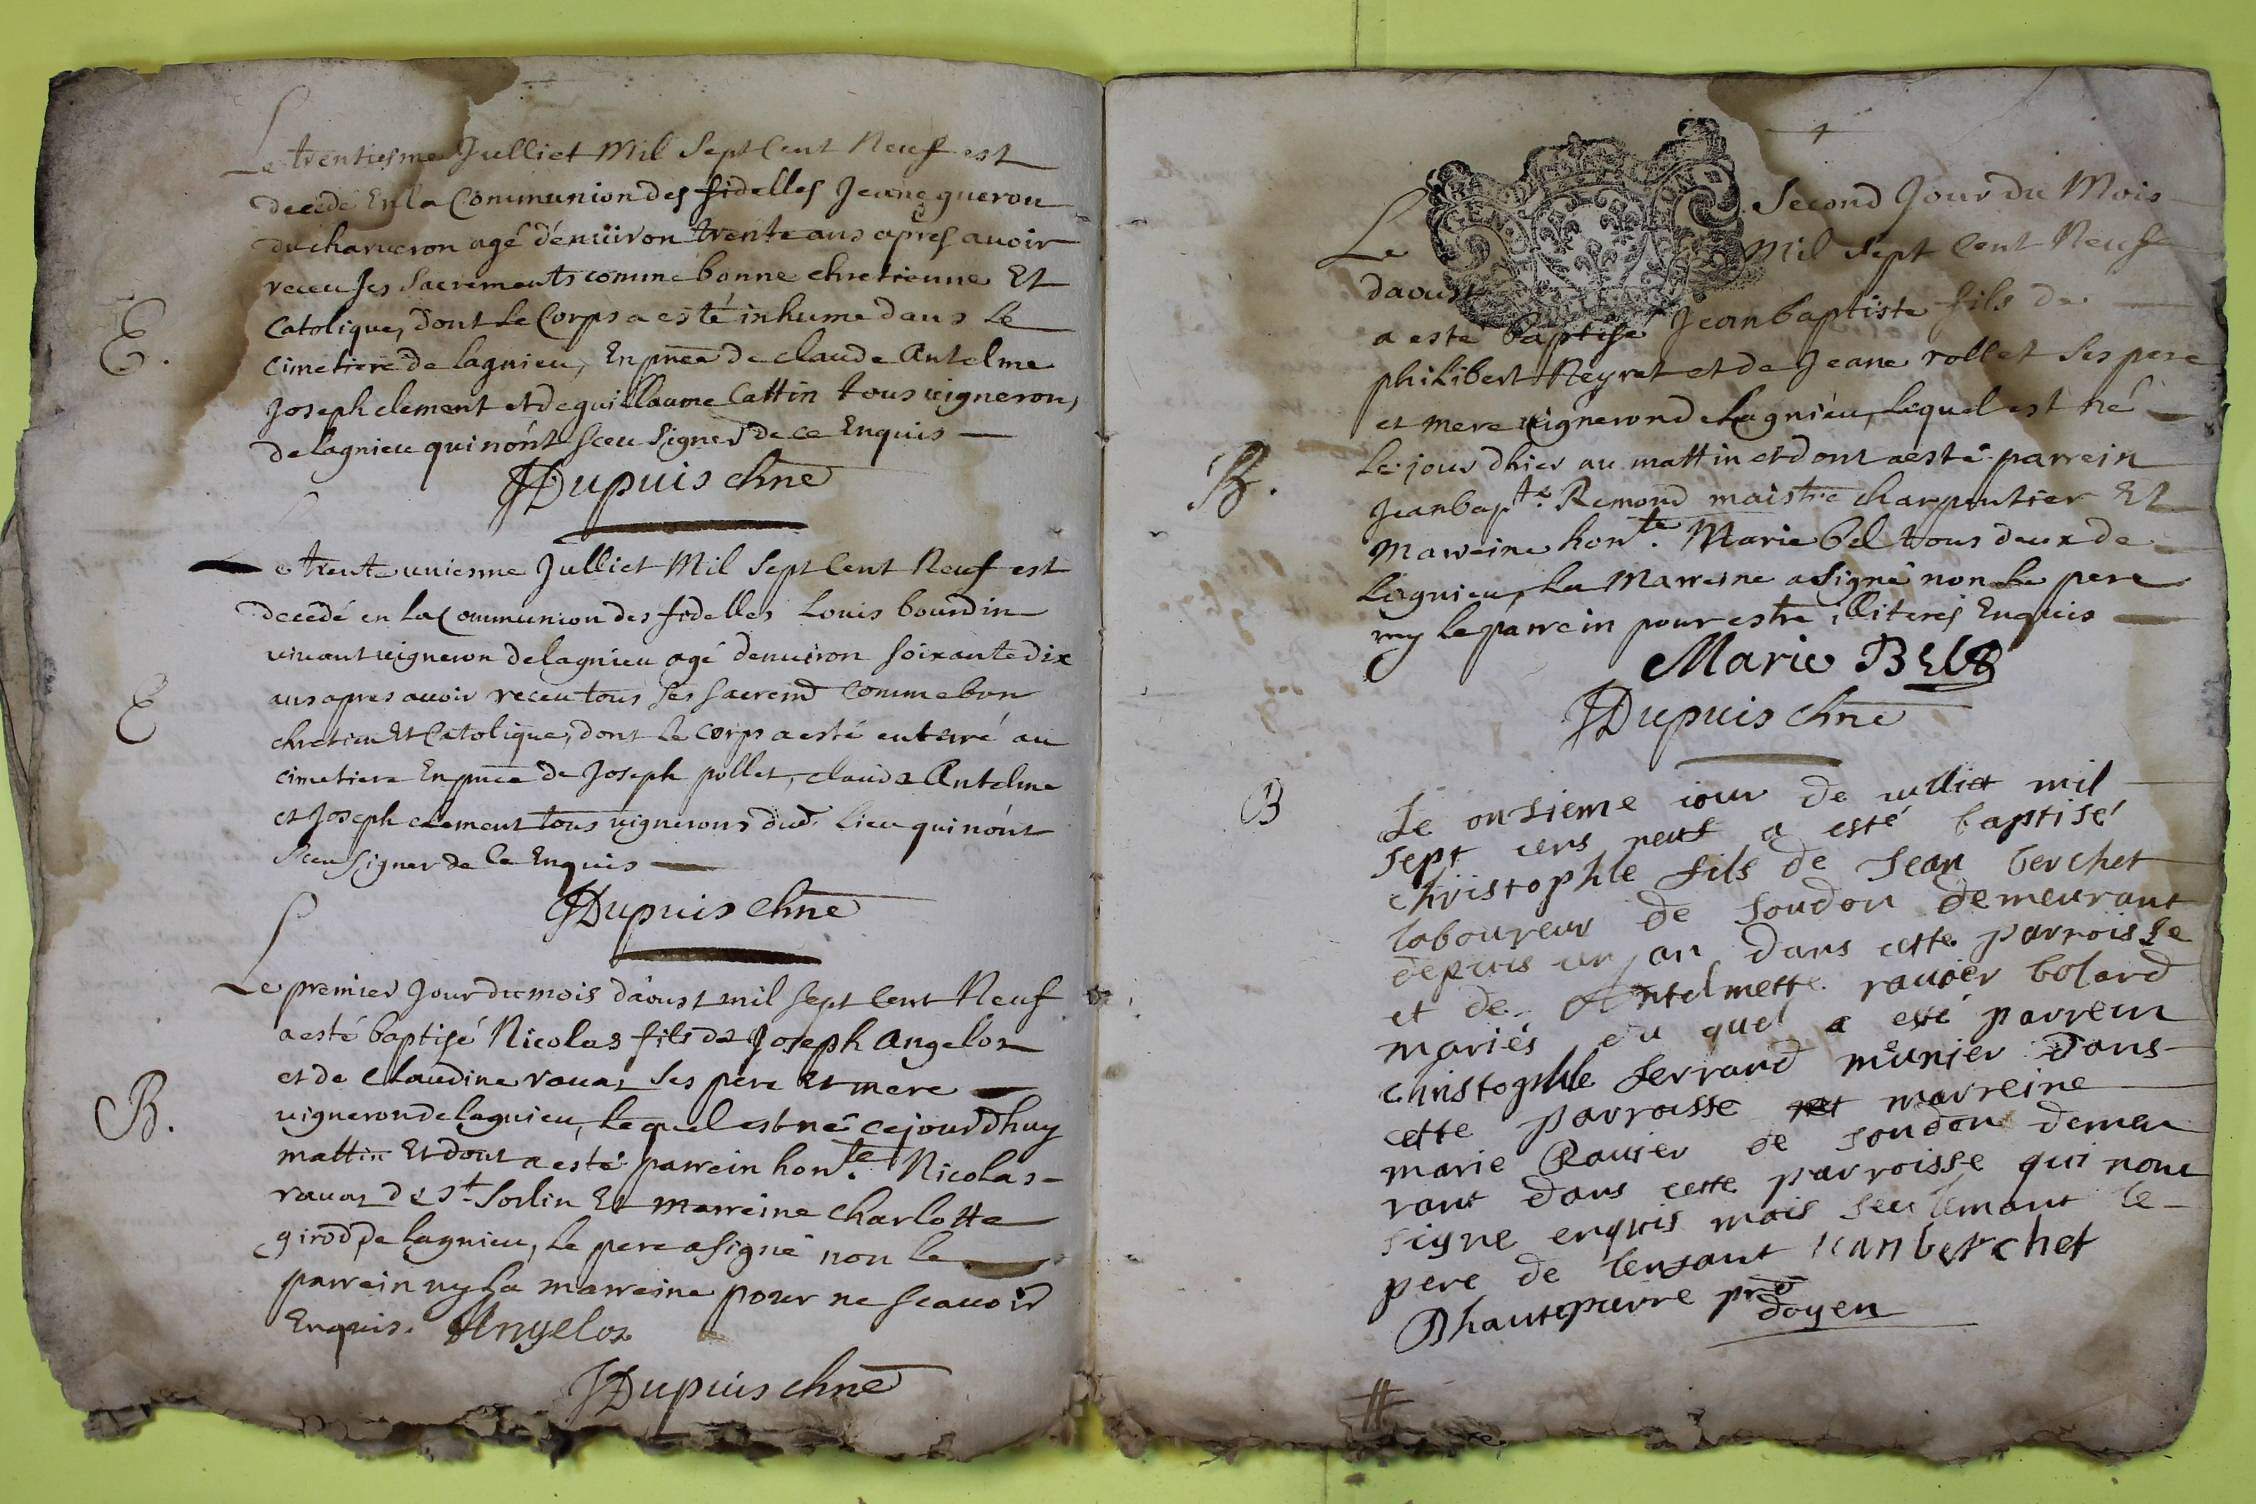 Le trentiesme Julliet Mil Sept Cent Neuf est
decedé En la Communion des fidelles Jeane guerou
du charveron agé d'enuiron trente ans apres auoir
receu ses Sacrements comme bonne chretienne Et
Catolique, dont Le Corps a esté inhume dans Le
E.
cimetiere de lagnieu, En pnce de claude Antelme
Joseph clement et de guillaume Cattin tous uigneron,
de lagnieu qui nont sceu signer de ce Enquis
JDupuis chne
Le trente uniesme Julliet Mil Sept Cent Neuf est
decedé en la Communion des fidelles Louis bourdin
uiuant uigneron de lagnieu agé denuiron soixante dix
E
ans apres auoir receu tous ses sacremd comme bon
chretien Et Catolique, dont Le corps a esté enterré au
cimetiere En pnce de Joseph pollet, claude Antelme
et Joseph clement tous uignerons dud. Lieu qui nont
sceu signer de Ce Enquis
JDupuis chne
Le premier Jour du mois d'aoust mil sept Cent Neuf
a esté baptisé Nicolas fils de Joseph Angelot
et de Claudine rauat ses pere Et mere
B.
uigneron de lagnieu, le quel est né ce jourdhuy
mattin Et dont a esté parrein honte. Nicolas
rauat de st. Sorlin Et marreine Charlotte
girod de lagnieu, le pere a signé non le
parrein ny la marreine pour ne scauoir
Enquis. Angelot
JDupuis chne
Le Second Jour du Mois
daoust Mil sept Cent Neuf
a esté baptisé Jean baptiste fils de
philibert Neyret et de Jeane rollet ses pere
et mere uigneron de Lagnieu, lequel est né
B.
Le jour dhier au mattin et dont a esté parrein
Jean bapte. Remond maistre charpentier Et
Marreine honte. Marie bel tous deux de
Lagnieu, La Marreine a signé non Le pere
ny le parrein pour estre illiterés Enquis
Marie BEL
JDupuis chne
B
Le onsieme iour de iulliet mil
sept cens neuf a esté baptisé
christophle fils de Jean berchet
laboureur de soudon demeurant
depuis un an dans cette parroisse
et de Antelmette rauier bolard
mariés du quel a esté parrein
christophle ferrand munier dans
cette parroisse et marreine
marie Rauier de soudon demeu
rant dans cette parroisse qui nont
signe enquis mais seulemant le
pere de lenfant ian berchet
Dhautepierre pre
doyen